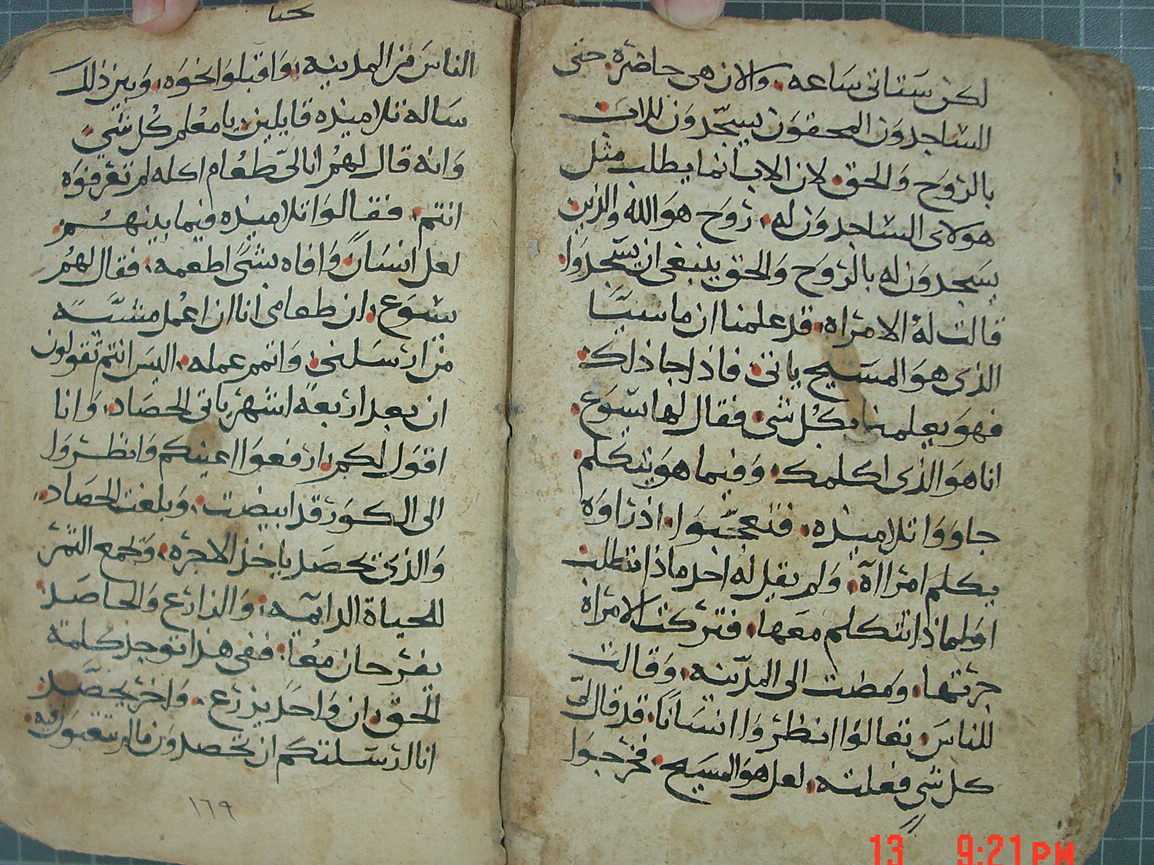 لكن ستاتى ساعه. والان هى حاضره. حتى
الساجدون المحقون يسجدون للاب
بالروح والحق. لان الاب انما يطلب مثل
هولاى الساجدون له. روح هو الله والذين
يسجدون له بالروح والحق ينبغى ان يسجدوا.
قالت له الامراه. قد علمنا ان ماسيا
الذى هو المسيح ياتى. فاذا جا ذلك.
فهو يعلمنا بكل شى. فقال لها يسوع.
انا هو الذى اكلمك. وفيما هو يتكلم.
جاووا تلاميذه. فتعجبوا. اذ راوه
يكلم امرااة. ولم يقل له احد ماذا تطلب
او لماذا تتكلم معها. فتركت الامراه
جرتها. ومضت الى المدينه. وقالت
للناس. تعالوا انظروا انسانًا. قد قال لى
كل شى فعلته. لعل هو المسيح. فخرجوا
نحيا
الناس من المدينه. واقبلوا نحوه. وبين ذلك
ساله تلاميذه قايلين. يا معلم كل شى
وانه قال لهم انا لى طعام اكله لم تعرفوه
انتم. فقالوا تلاميذه فيما بينهم.
لعل انسان وافاه بشى اطعمه. فقال لهم
يسوع. ان طعامى انا ان اعمل مشية
من ارسلنى. واتمم عمله. اليس انتم تقولون
ان بعد اربعة اشهر ياتى الحصاد. وانا
اقول لكم. ارفعوا اعينكم وانظروا
الى الكور قد ابيضت. وبلغت الحصاد.
والذى يحصد ياخذ الاجره. ويجمع الثمر
للحياة الدايمه. والزارع والحاصد
يفرحان معًا. ففى هذا توجد كلمة
الحق. ان واحد يزرع. واخر يحصد
انا ارسلتكم ان تحصدون ما لم تتعبوا فيه.
١٦٩
13 9:21PM